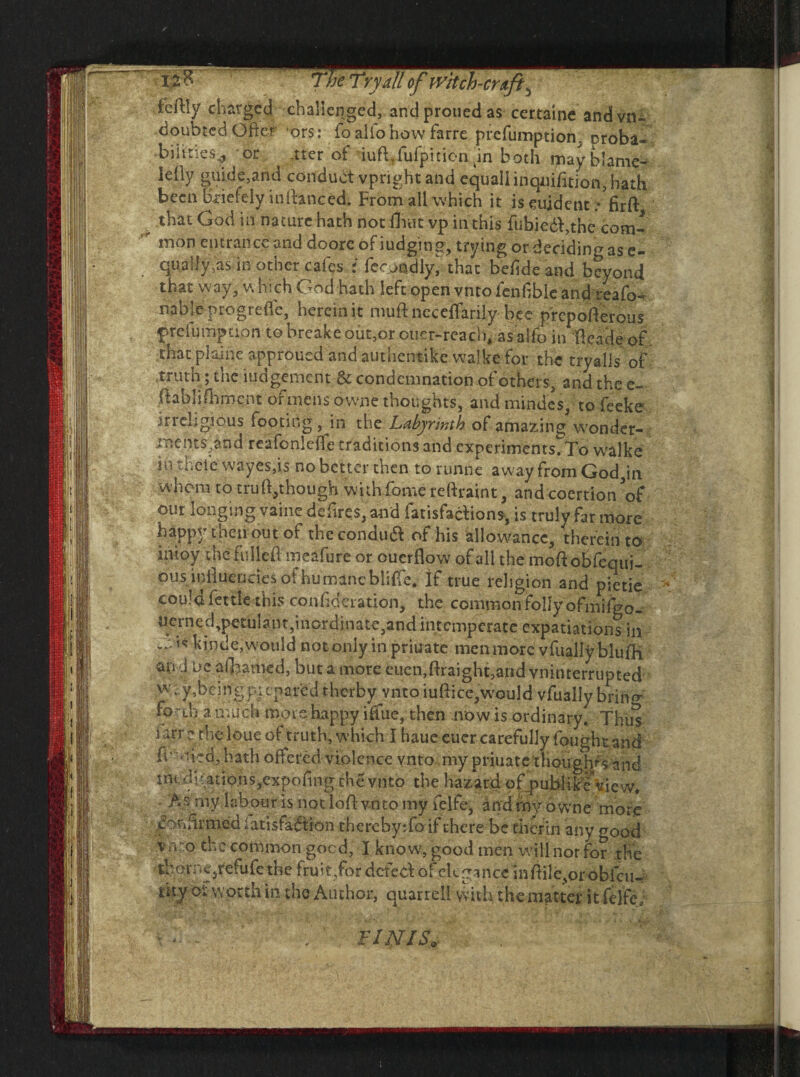 128 The Tryall of Witch-craft,
festly charged challenged, and proued as certaine and vn-
doubted Offe ors: so also how farre presumption, proba-
bilities, or tter of iust suspition in both may blame-
lesly guide, and conduct vpright and equall inquisition, hath
been briefely instanced. From all which it is euident: first,
that God in nature hath not shut vp in this subiect, the com-
mon entrance and doore of iudging, trying or deciding as e-
qually, as in other cases: secondly, that beside and beyond
that way, which God hath left open vnto sensible and reaso-
nable progresse, herein it must necessarily bee preposterous
presumption to breake out, or ouer-reach, as also in steade of
that plaine approued and authentike walke for the tryalls of
truth; the iudgement & condemnation of others, and the e-
stablishment of mens owne thoughts, and mindes, to seeke
irreligious footing, in the Labyrinth of amazing wonder-
ments, and reasonlesse traditions and experiments. To walke
in these wayes, is no better then to runne away from God, in
whom to trust, though with some restraint, and coertion of
our longing vaine desires, and satisfactions, is truly far more
happy then out of the conduct of his allowance, therein to
inioy the fullest measure or ouerflow of all the most obsequi-
ous influencies of humane blisse. If true religion and pietie
could settle this consideration, the common folly of misgo-
uerned, petulant, inordinate, and intemperate expatiations in
kinde, would not only in priuate men more vsually blush
and be ashamed, but a more euen, straight, and vninterrupted
way, being prepared therby vnto iustice, would vsually bring
forth a much more happy issue, then now is ordinary. Thus
farre the loue of truth, which I haue euer carefully sought and
studied, hath offered violence vnto my priuate thoughts and
meditations, exposing the vnto the hazard of publike view.
As my labour is not lost vnto my selfe, and my owne more
confirmed satisfaction thereby: so if there be therin any good
vnto the common good, I know, good men will not for the
thorne, refuse the fruit, for defect of elegance in stile, or obscu-
rity of worth in the Author, quarrell with the matter it selfe.
FINIS.